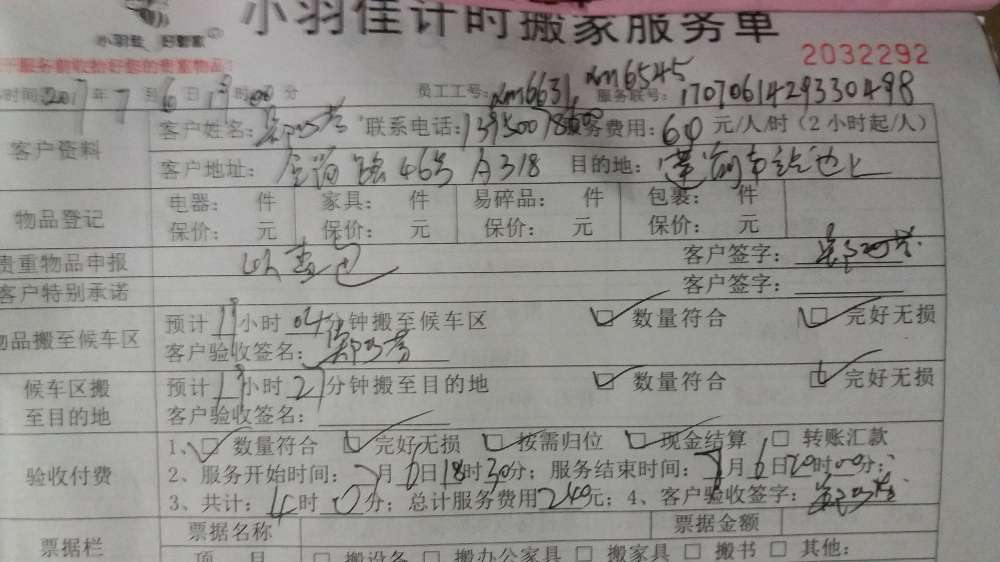 小羽佳计时搬家服务单
小羽佳 好管家
2032292
时间:2017年7月6日19时00分 员工工号:xm6631, xm6545 服务联号:17070614293304498
客户资料
客户姓名: 联系电话: 服务费用:60元/人/时(2小时起/人)
客户地址: 465号A318 目的地:
物品登记
电器: 件 家具: 件 易碎品: 件 包裹: 件
保价: 元 保价: 元 保价: 元 保价: 元
贵重物品申报 客户签字:
客户特别承诺 客户签字:
物品搬至候车区
预计19小时04分钟搬至候车区 数量符合 完好无损
客户验收签名:
候车区搬至目的地
预计19小时27分钟搬至目的地 数量符合 完好无损
客户验收签名:
验收付费
1、数量符合 完好无损 按需归位 现金结算 转账汇款
2、服务开始时间:7月6日18时30分;服务结束时间:7月6日20时00分;
3、共计:4时0分;总计服务费用240元;4、客户验收签字:
票据栏
票据名称 票据金额
项 目 搬设备 搬办公家具 搬家具 搬书 其他: